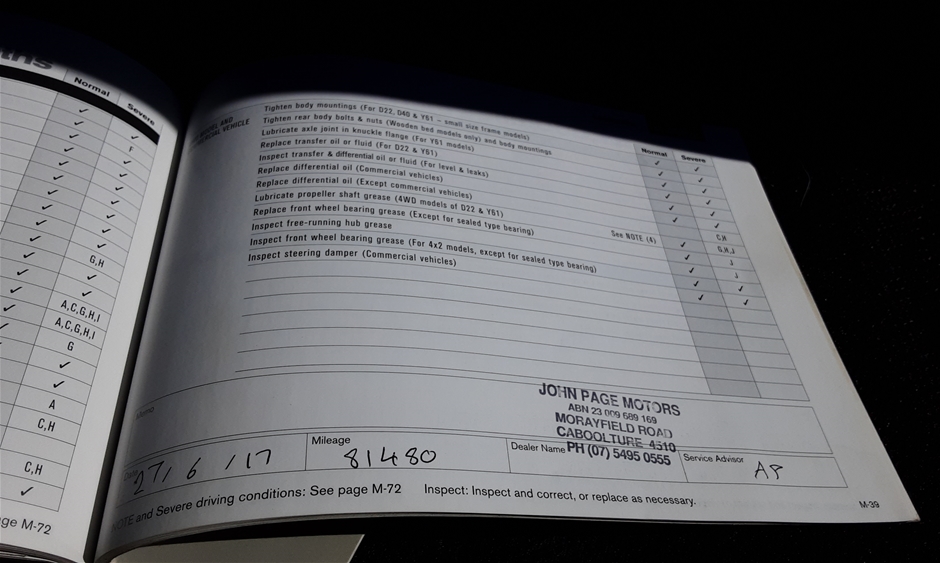 Normal
Severe
✓ ✓
✓ F
✓ ✓
✓ ✓
✓ ✓
✓ ✓
✓ ✓
✓ G,H
✓ ✓
✓ ✓
✓ A,C,G,H,I
✓ A,C,G,H,I
G
✓
✓
A
C,H
C,H
✓
M-72
VEHICLE
Normal Severe
Tighten body mountings (For D22, D40 & Y61 – small size frame models)
Tighten rear body bolts & nuts (Wooden bed models only) and body mountings
Lubricate axle joint in knuckle flange (For Y61 models)
Replace transfer oil or fluid (For D22 & Y61)
Inspect transfer & differential oil or fluid (For level & leaks)
Replace differential oil (Commercial vehicles)
Replace differential oil (Except commercial vehicles)
Lubricate propeller shaft grease (4WD models of D22 & Y61)
Replace front wheel bearing grease (Except for sealed type bearing) See NOTE (4)
Inspect free-running hub grease
Inspect front wheel bearing grease (For 4x2 models, except for sealed type bearing)
Inspect steering damper (Commercial vehicles)
C,H
G,H,J
J
J
Memo
JOHN PAGE MOTORS
ABN 23 009 689 169
MORAYFIELD ROAD
CABOOLTURE 4510
PH (07) 5495 0555
27/6/17
Mileage
81480
Dealer Name
Service Advisor
AP
NOTE and Severe driving conditions: See page M-72 Inspect: Inspect and correct, or replace as necessary.
M-39